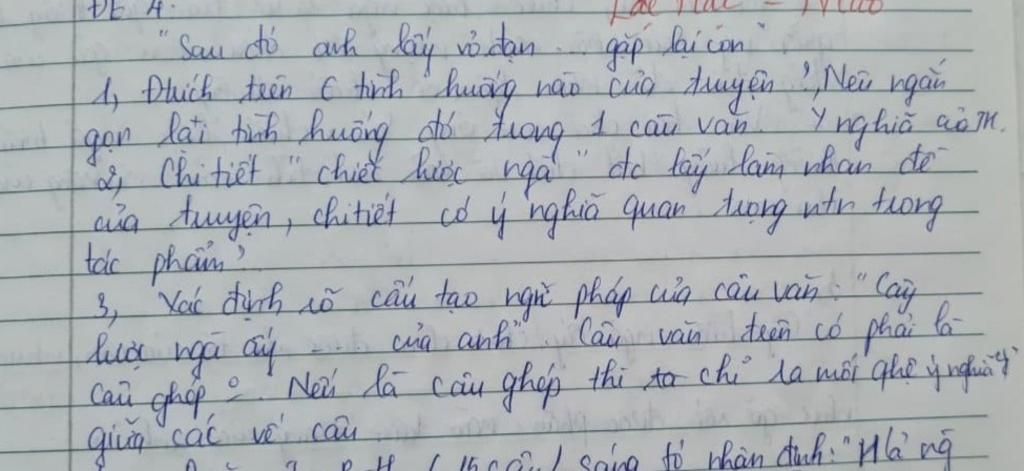 ĐỀ 4:
"Sau đó anh lấy vỏ đạn ... gặp lại con"
1, Đtrích trên € tình huống nào của truyện? Nêu ngắn
gọn lại tình huống đó trong 1 câu văn. Ý nghĩa của TH.
2, Chi tiết "chiếc lược ngà" đc lấy làm nhan đề
của truyện, chi tiết có ý nghĩa quan trọng ntn trong
tác phẩm?
3, Xác định rõ cấu tạo ngữ pháp của câu văn: "Cây
lược ngà ấy ... của anh". Câu văn trên có phải là
câu ghép? Nếu là câu ghép thì ta chỉ ra mối qhệ ý nghĩa
giữa các vế câu
(15 câu) sáng tỏ nhận định: "